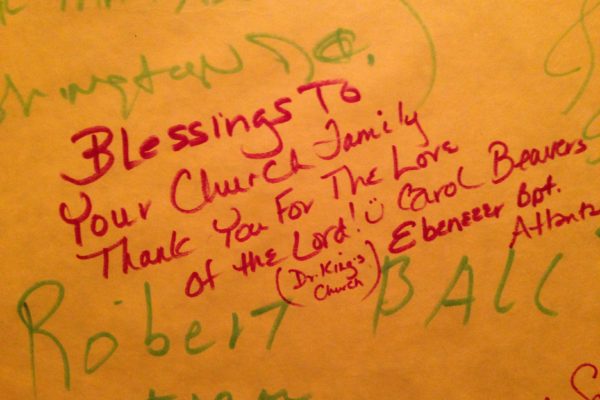 Washington D.C.
Blessings To
Your Church Family
Thank You For The Love
of the Lord! Carol Beavers
(Dr. King's Church) Ebenezer Bpt.
Atlanta
Robert Ball